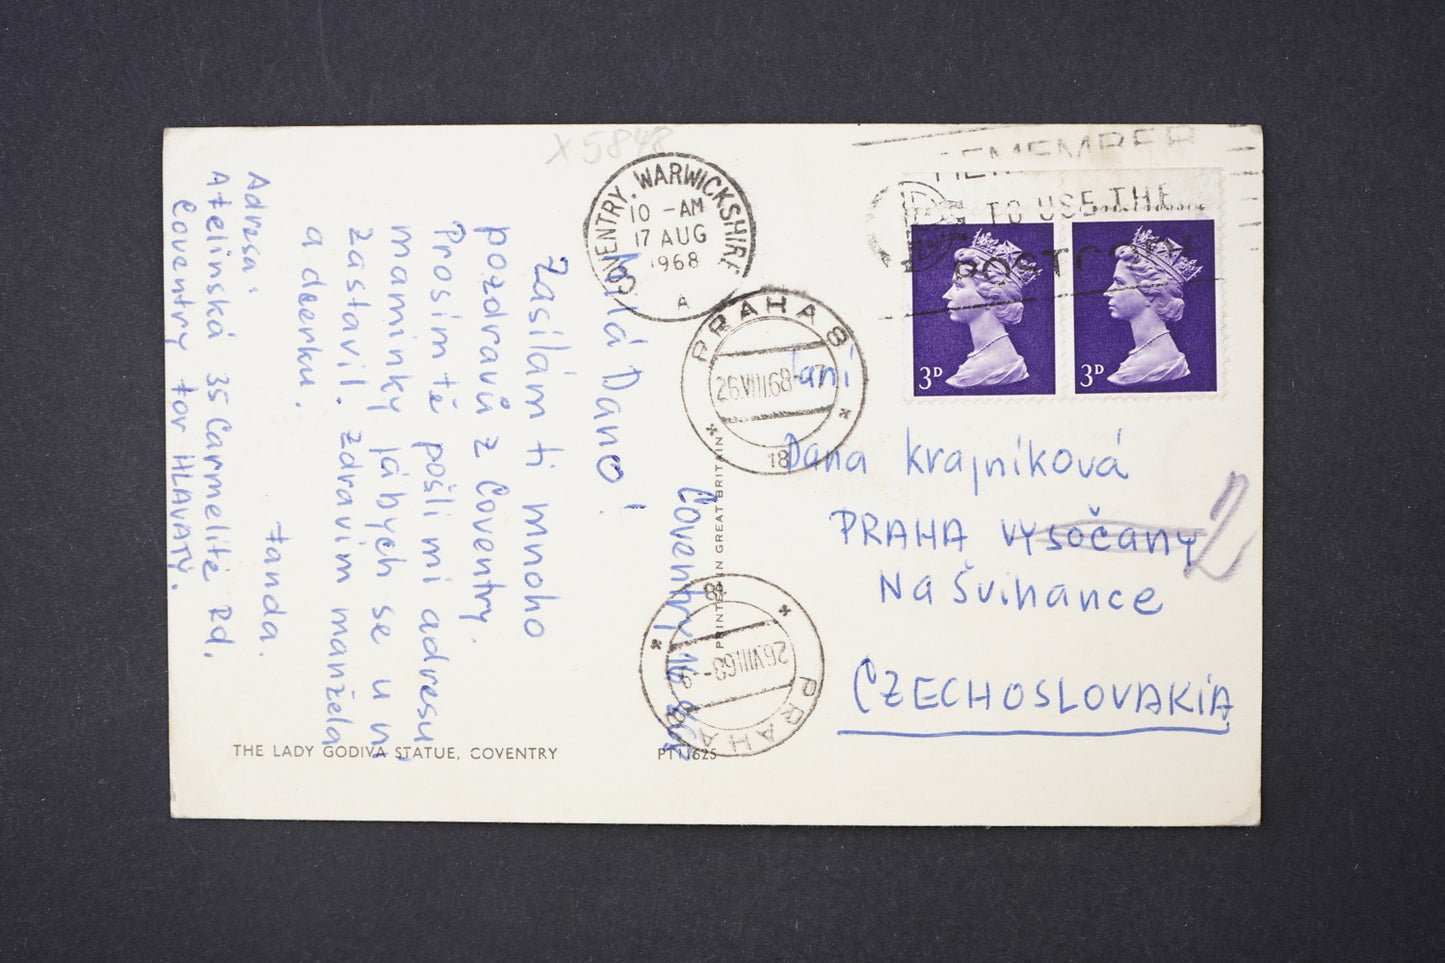 X5848
COVENTRY. WARWICKSHIRE
10 - AM
17 AUG
1968
A
REMEMBER
TO USE THE
POSTCODE
3D
3D
PRAHA 8
26.VIII.68-7
18
Coventry 16
Milá Dano!
Zasílám ti mnoho
pozdravů z Coventry.
Prosím tě pošli mi adresu
maminky jábych se u ní
zastavil. Zdravím manžela
a dcerku.
Adresa:
35 Carmelite Rd.
Coventry for HLAVATY.
Dana Krajníková
PRAHA Vysočany
2
Na Švihance
CZECHOSLOVAKIA
PRINTED IN GREAT BRITAIN
PRAHA
26.VIII.68-
18
THE LADY GODIVA STATUE, COVENTRY
PT11625